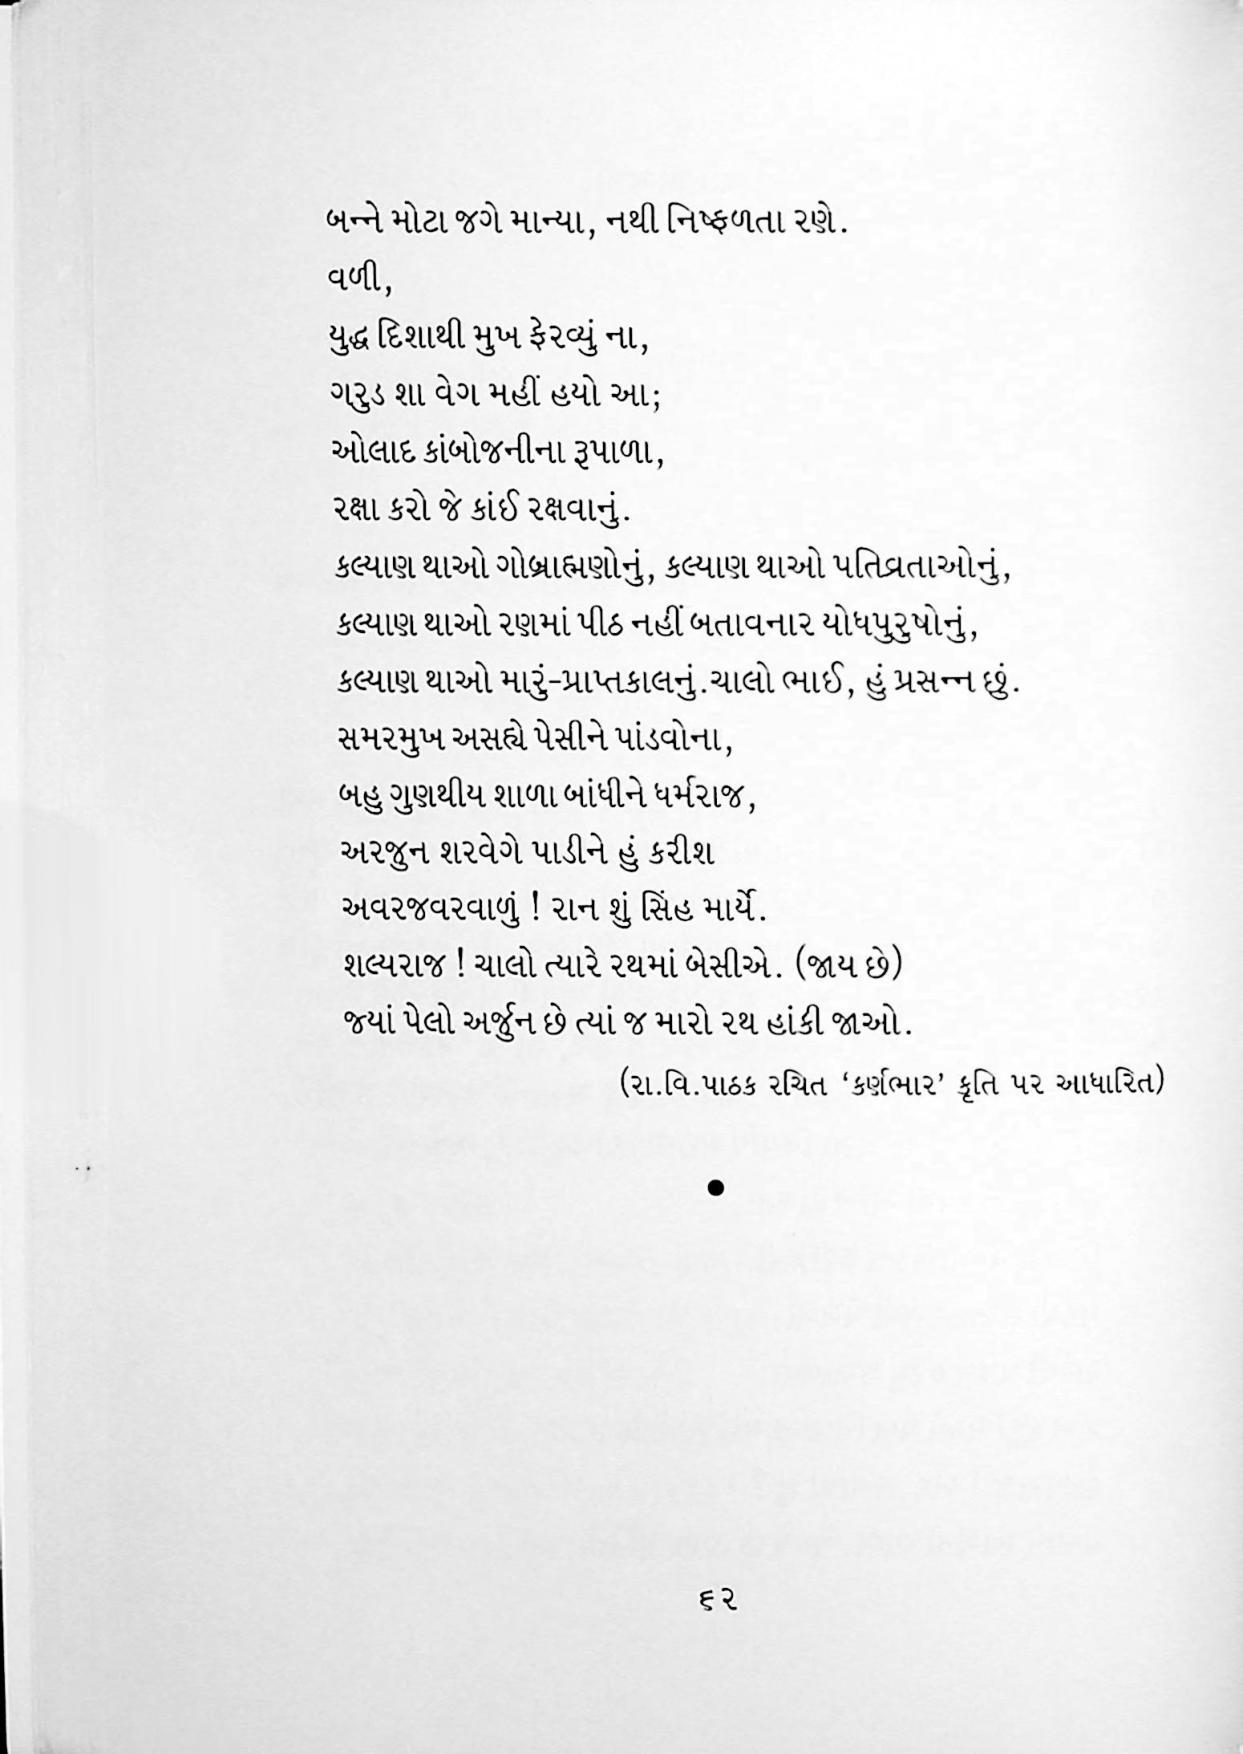 બન્ને મોટા જગે માન્યા, નથી નિષ્ફળતા રણે.
વળી,
યુદ્ધ દિશાથી મુખ ફેરવ્યું ના,
ગરુડ શા વેગ મહીં હયો આ;
ઓલાદ કાંબોજનીના રૂપાળા,
રક્ષા કરો જે કાંઈ રક્ષવાનું.
કલ્યાણ થાઓ ગોબ્રાહ્મણોનું, કલ્યાણ થાઓ પતિવ્રતાઓનું,
કલ્યાણ થાઓ રણમાં પીઠ નહીં બતાવનાર યોધપુરુષોનું,
કલ્યાણ થાઓ મારું-પ્રાપ્તકાલનું.ચાલો ભાઈ, હું પ્રસન્ન છું.
સમરમુખ અસહ્યે પેસીને પાંડવોના,
બહુ ગુણથીય શાળા બાંધીને ધર્મરાજ,
અરજુન શરવેગે પાડીને હું કરીશ
અવરજવરવાળું ! રાન શું સિંહ માર્યે.
શલ્યરાજ ! ચાલો ત્યારે રથમાં બેસીએ. (જાય છે)
જ્યાં પેલો અર્જુન છે ત્યાં જ મારો રથ હાંકી જાઓ.
(રા.વિ.પાઠક રચિત ‘કર્ણભાર’ કૃતિ પર આધારિત)
●
૬૨